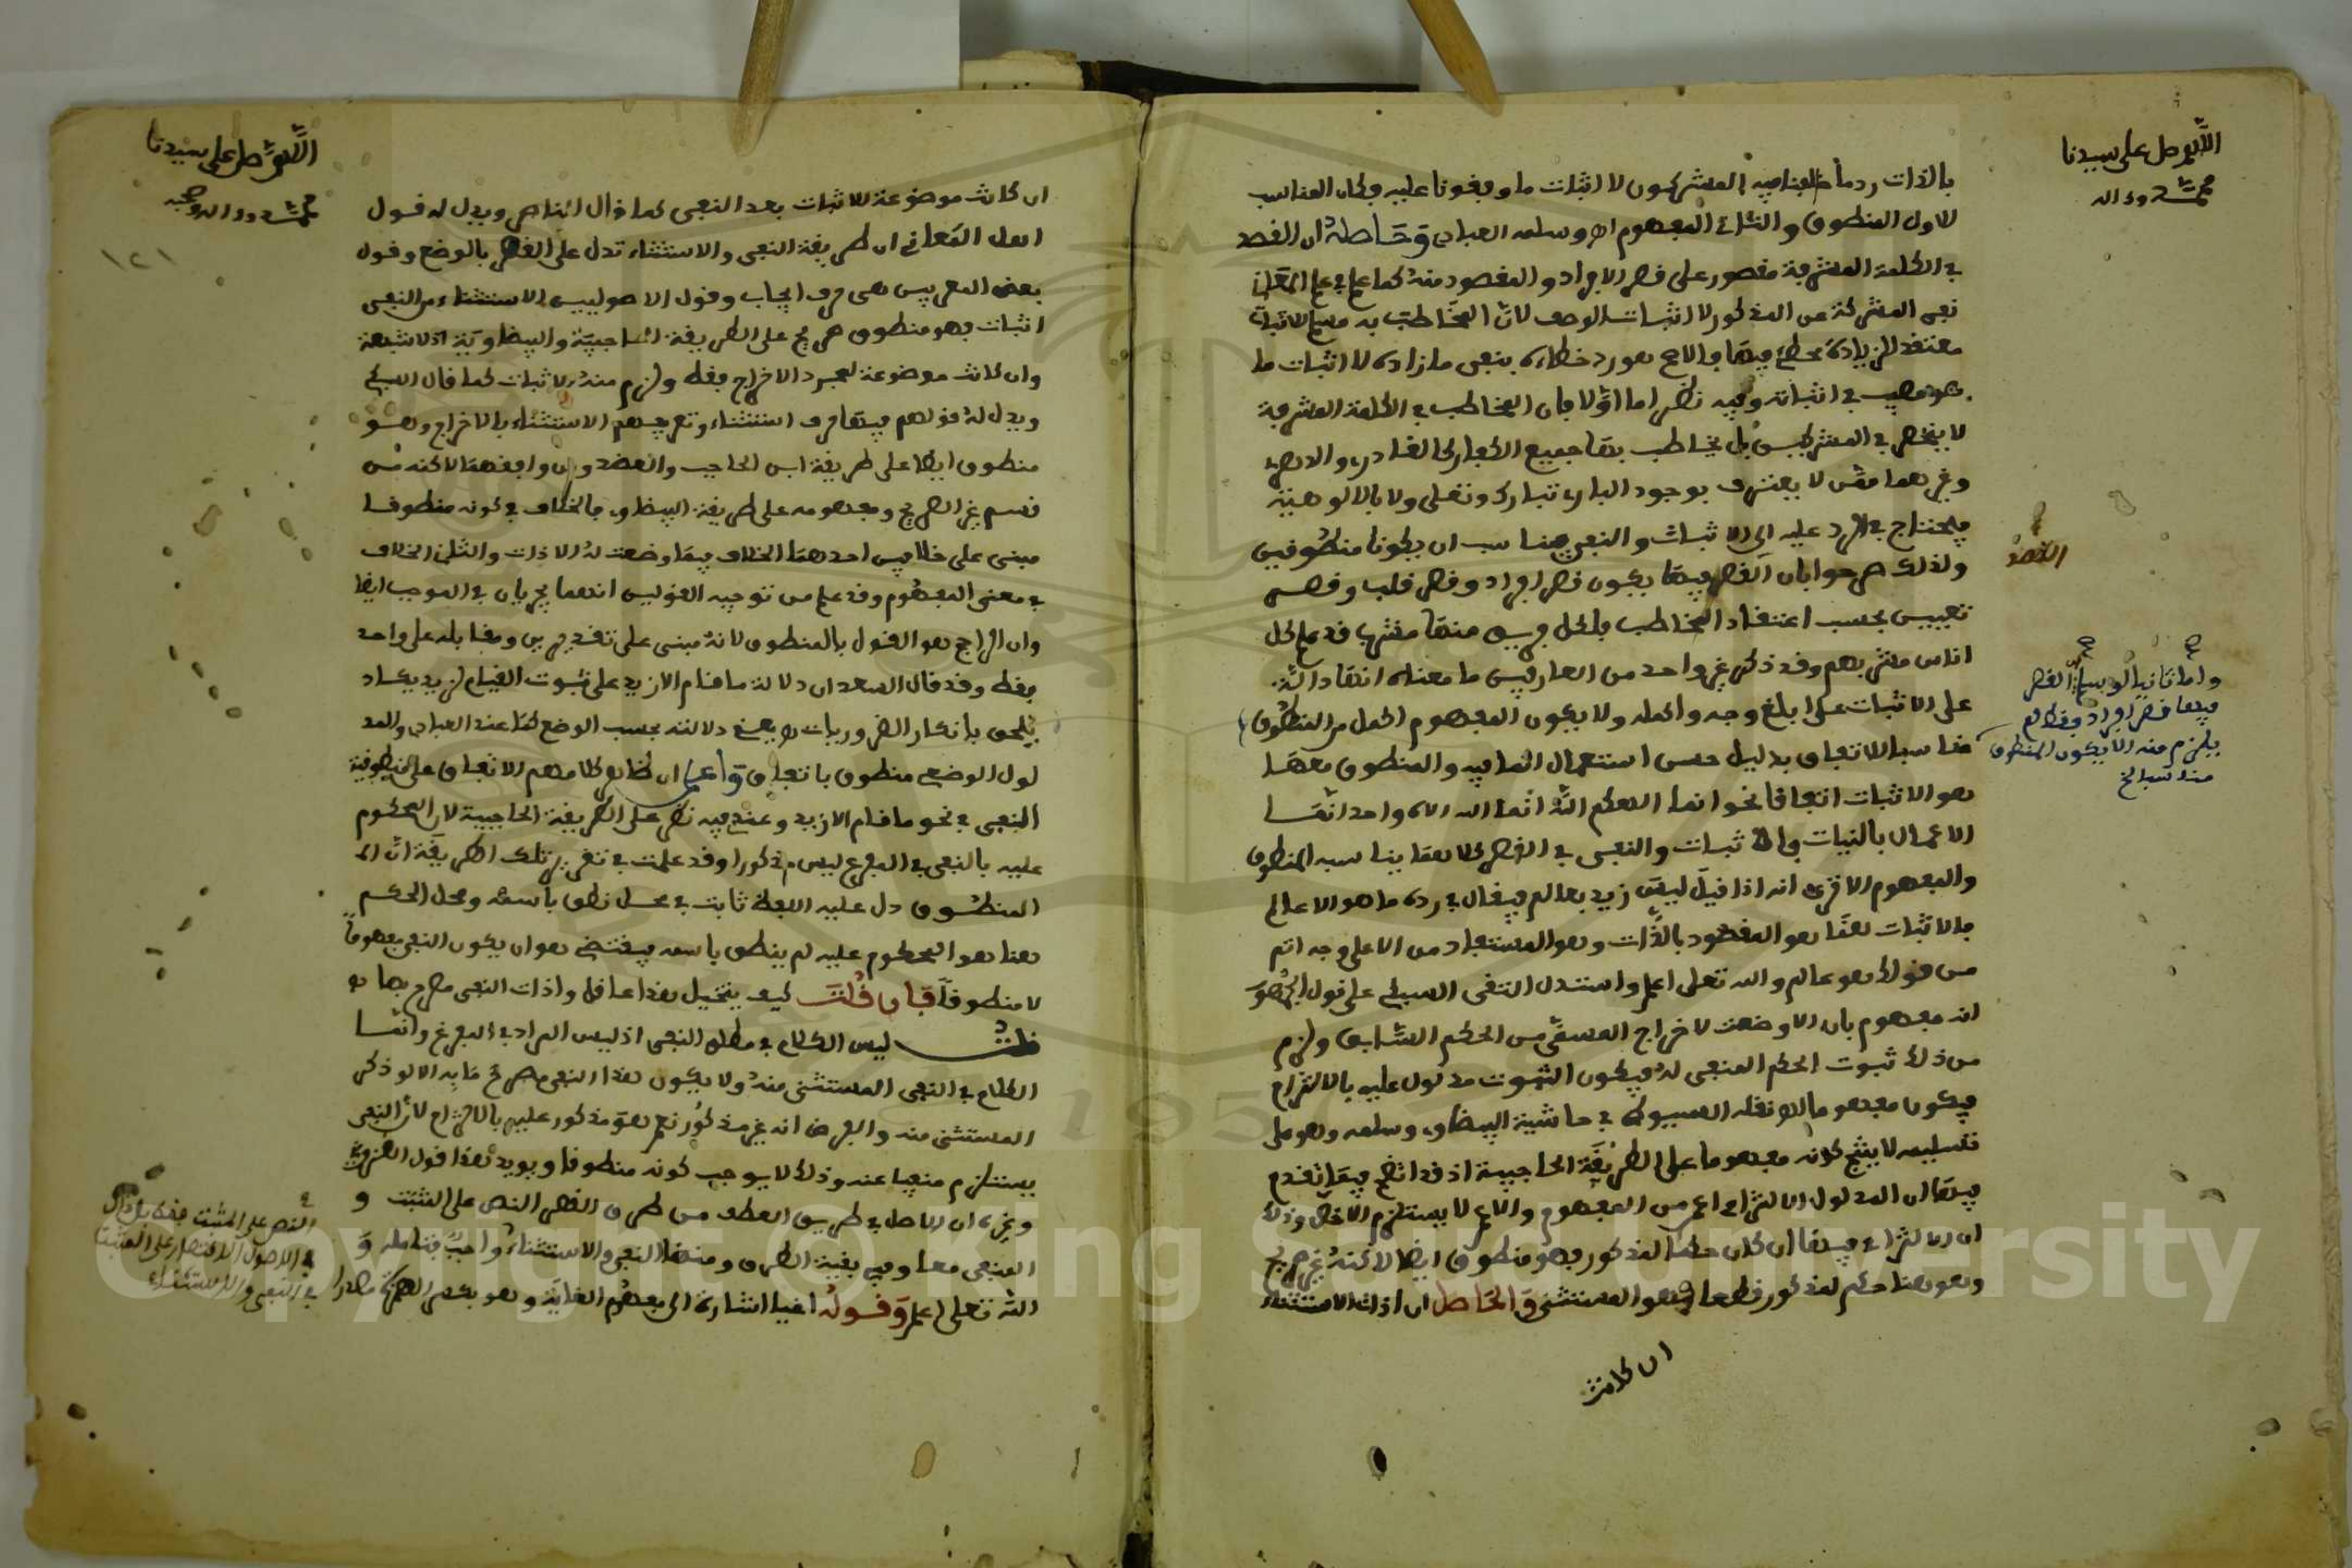 اللهم صل على سيدنا
محمد وءاله
بالذات رد ما خالفنا فيه المشركون لا اثبات ما وافقونا عليه فكان المناسب
للاول المنطوق والثاني المفهوم اهـ وسلمه العبادي وحاصله ان القصد
في الكلمة المشرفة مقصور على قصر الافراد والمقصود منه كما علم في علم المعاني
نفي الشركة عن المذكور لا اثبات الوصف لان المخاطب به مع الاثبات
معتقد للزيادة مخطئ فيها فالاهم هو رد خطاءه بنفي ما زاده لا اثبات ما
هو مصيب في اثباته وفيه نظر اما اولا فان المخاطب في الكلمة المشرفة
لا ينحصر في المشركين بل يخاطب بها جميع الكفار كالقادري والدهري
وغيرهما ممن لا يعترف بوجود الباري تبارك وتعلى ولا بالالوهية
فيحتاج في الرد عليه الى الاثبات والنفي فيناسب ان يكونا منطوقين
ولذلك صرحوا بان القصر فيها يكون قصر افراد وقصر قلب وقصر
تعيين بحسب اعتقاد المخاطب فلكل فريق منها مشرب قد علم كل
اناس مشربهم وقد ذكر غير واحد من العارفين ما معناه انها دالة
على الاثبات على ابلغ وجه واكمله ولا يكون المفهوم اكمل من المنطوق
مناسبا للاتفاق بدليل حسن استعمال انما فيه والمنطوق معها
هو الاثبات اتفاقا نحو انما الهكم الله انما الله الاه واحد انما
الاعمال بالنيات فالاثبات والنفي في القصر كلاهما يناسبه المنطوق
والمفهوم الا ترى انه اذا قيل ليس زيد بعالم فيقال في رده ما هو الا عالم
فالاثبات هنا هو المقصود بالذات وهو المستفاد من الا على وجه اتم
من قولك هو عالم والله تعلى اعلم واستدل التقي السبكي على قول الجمهور
انه مفهوم بان الا وضعت لاخراج المستثنى من الحكم السابق ولزم
من ذلك ثبوت الحكم المنفي له فيكون الثبوت مدلول عليه بالالتزام
فيكون مفهوما نقله السيوطي في حاشية البيضاوي وسلمه وهو على
تسليمه لا ينتج كونه مفهوما على الطريقة الحاجبية اذ قد اتضح فيما تقدم
فيها ان المدلول الالتزامي اعم من المفهوم والاعم لا يستلزم الاخص وذلك
ان الالتزامي فيها ان كان حكما لمذكور فهو منطوق ايضا لاكنه غير صريح
وهو هنا حكم لمذكور قطعا وهو المستثنى والحاصل ان اداة الاستثناء
ان كانت
القصد
واما ثانيا فلو سلم ان القصر
فيها قصر افراد فقط لم
يلزم منه الا يكون المنطوق
مناسبا الخ
اللهم صل على سيدنا
محمد وءاله وصحبه
١٢١
ان كانت موضوعة للاثبات بعد النفي كما قال الناصر ويدل له قول
اهل المعاني ان طريقة النفي والاستثناء تدل على القصر بالوضع وقول
بعض المعربين هي حرف ايجاب وقول الاصوليين الاستثناء من النفي
اثبات فهو منطوق صريح على الطريقة الحاجبية والبيضاوية اذ لا شبهة
وان كانت موضوعة لمجرد الاخراج فقط ولزم منه الاثبات كما قال السبكي
ويدل له قولهم فيها حرف استثناء وتعريفهم الاستثناء بالاخراج وهو
منطوق ايضا على طريقة ابن الحاجب والعضد ومن وافقهما لاكنه من
قسم غير الصريح ومفهوم على طريقة البيضاوي فالخلاف في كونه منطوقا
مبني على خلافين احدهما الخلاف فيما وضعت له الاداة والثاني الخلاف
في معنى المفهوم وقد علم من توجيه القولين انهما يجريان في الموجب ايضا
وان الراجح هو القول بالمنطوق لانه مبني على تقديرين ومقابله على واحد
فقط وقد قال السعد ان دلالة ما قام الا زيد على ثبوت القيام لزيد يكاد
يلحق بانكار الضروريات اهـ يعني دلالته بحسب الوضع كما عند العبادي والمد
لول الوضعي منطوق باتفاق واعلم ان ظاهر كلامهم الاتفاق على منطوقية
النفي في نحو ما قام الا زيد وعندي فيه نظر على الطريقة الحاجبية لان المحكوم
عليه بالنفي في المفرغ ليس مذكورا وقد علمت في تقرير تلك الطريقة ان ال
المنطوق دل عليه اللفظ ثابت في محل نطق باسمه ومحل الحكم
هنا هو المحكوم عليه لم ينطق باسمه فيقتضي هو ان يكون النفي مفهوما
لا منطوقا فان قلت كيف يتخيل هذا عاقل واداة النفي مصرح بها
قلت ليس الكلام في مطلق النفي اذ ليس المراد في المفرغ وانما
الكلام في النفي المستثنى منه ولا يكون هذا النفي مصرحا به الا لو ذكر
المستثنى منه والفرض انه غير مذكور نعم هو مذكور عليه بالالتزام لان النفي
يستلزم منفيا عنه وذلك لا يوجب كونه منطوقا ويويد هذا قول القزويني
وغيره ان الاصل في طريق العطف من طرق القصر النص على المثبت و
المنفي معا وفي بقية الطرق ومنها النفي والاستثناء واجب فتامله و
الله تعلى اعلم وقوله اغيا اشارة الى مفهوم الغاية وهو بكسر الهمزة مصدر
النص على المثبت فقط
في الاصول الاقتصار على المثبت
في النفي والاستثناء